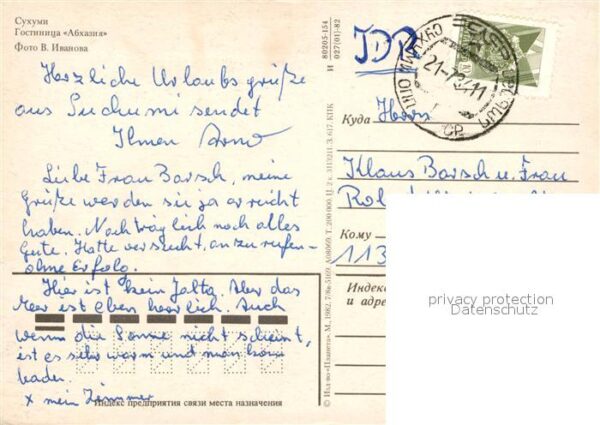 Сухуми
Гостиница «Абхазия»
Фото В. Иванова
И 80205-154
027(01)-82
DDR
Herzliche Urlaubsgrüße
aus Suchumi sendet
Ihnen Arno
Liebe Frau Barsch, meine
Grüße werden sie ja erreicht
haben. Nachträglich noch alles
Gute. Hatte versucht, anzurufen-
ohne Erfolg.
Hier ist kein Jalta. Aber das
Meer ist eben herrlich. Auch
wenn die Sonne nicht scheint,
ist es sehr warm und man kann
baden.
x mein Zimmer
Индекс предприятия связи места назначения
© Изд-во «Планета». М., 1982. Т. 200 000. Ц. 2 к. КПК
21-12
Куда
Herrn
Klaus Barsch u. Frau
Кому
113
Индекс
и адрес
privacy protection
Datenschutz